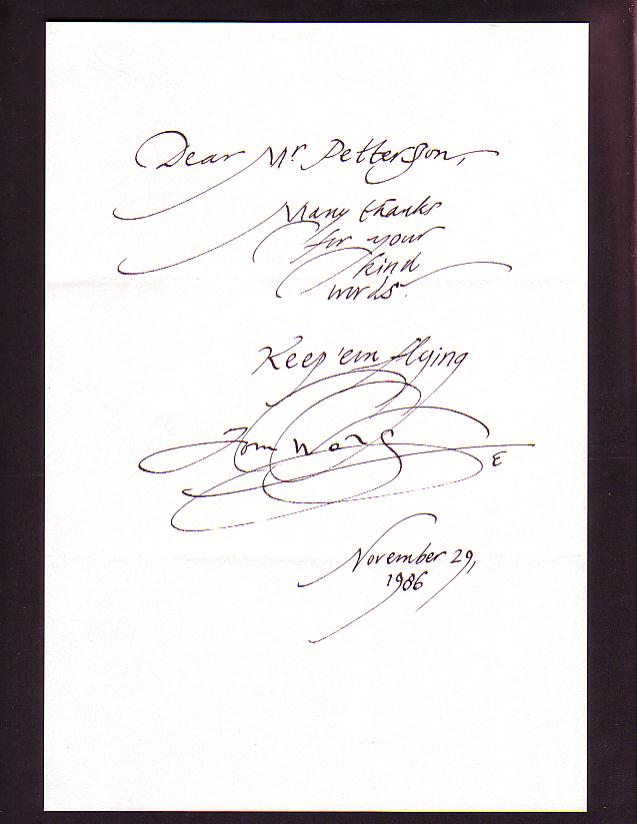 Dear Mr Petterson,
Many thanks
for your
kind
words.
Keep 'em flying
Tom
November 29,
1986